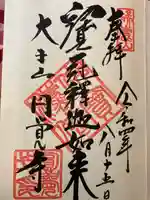 奉拝
令和四年
八月十五日
寳冠釋迦如来
大本山円覚寺